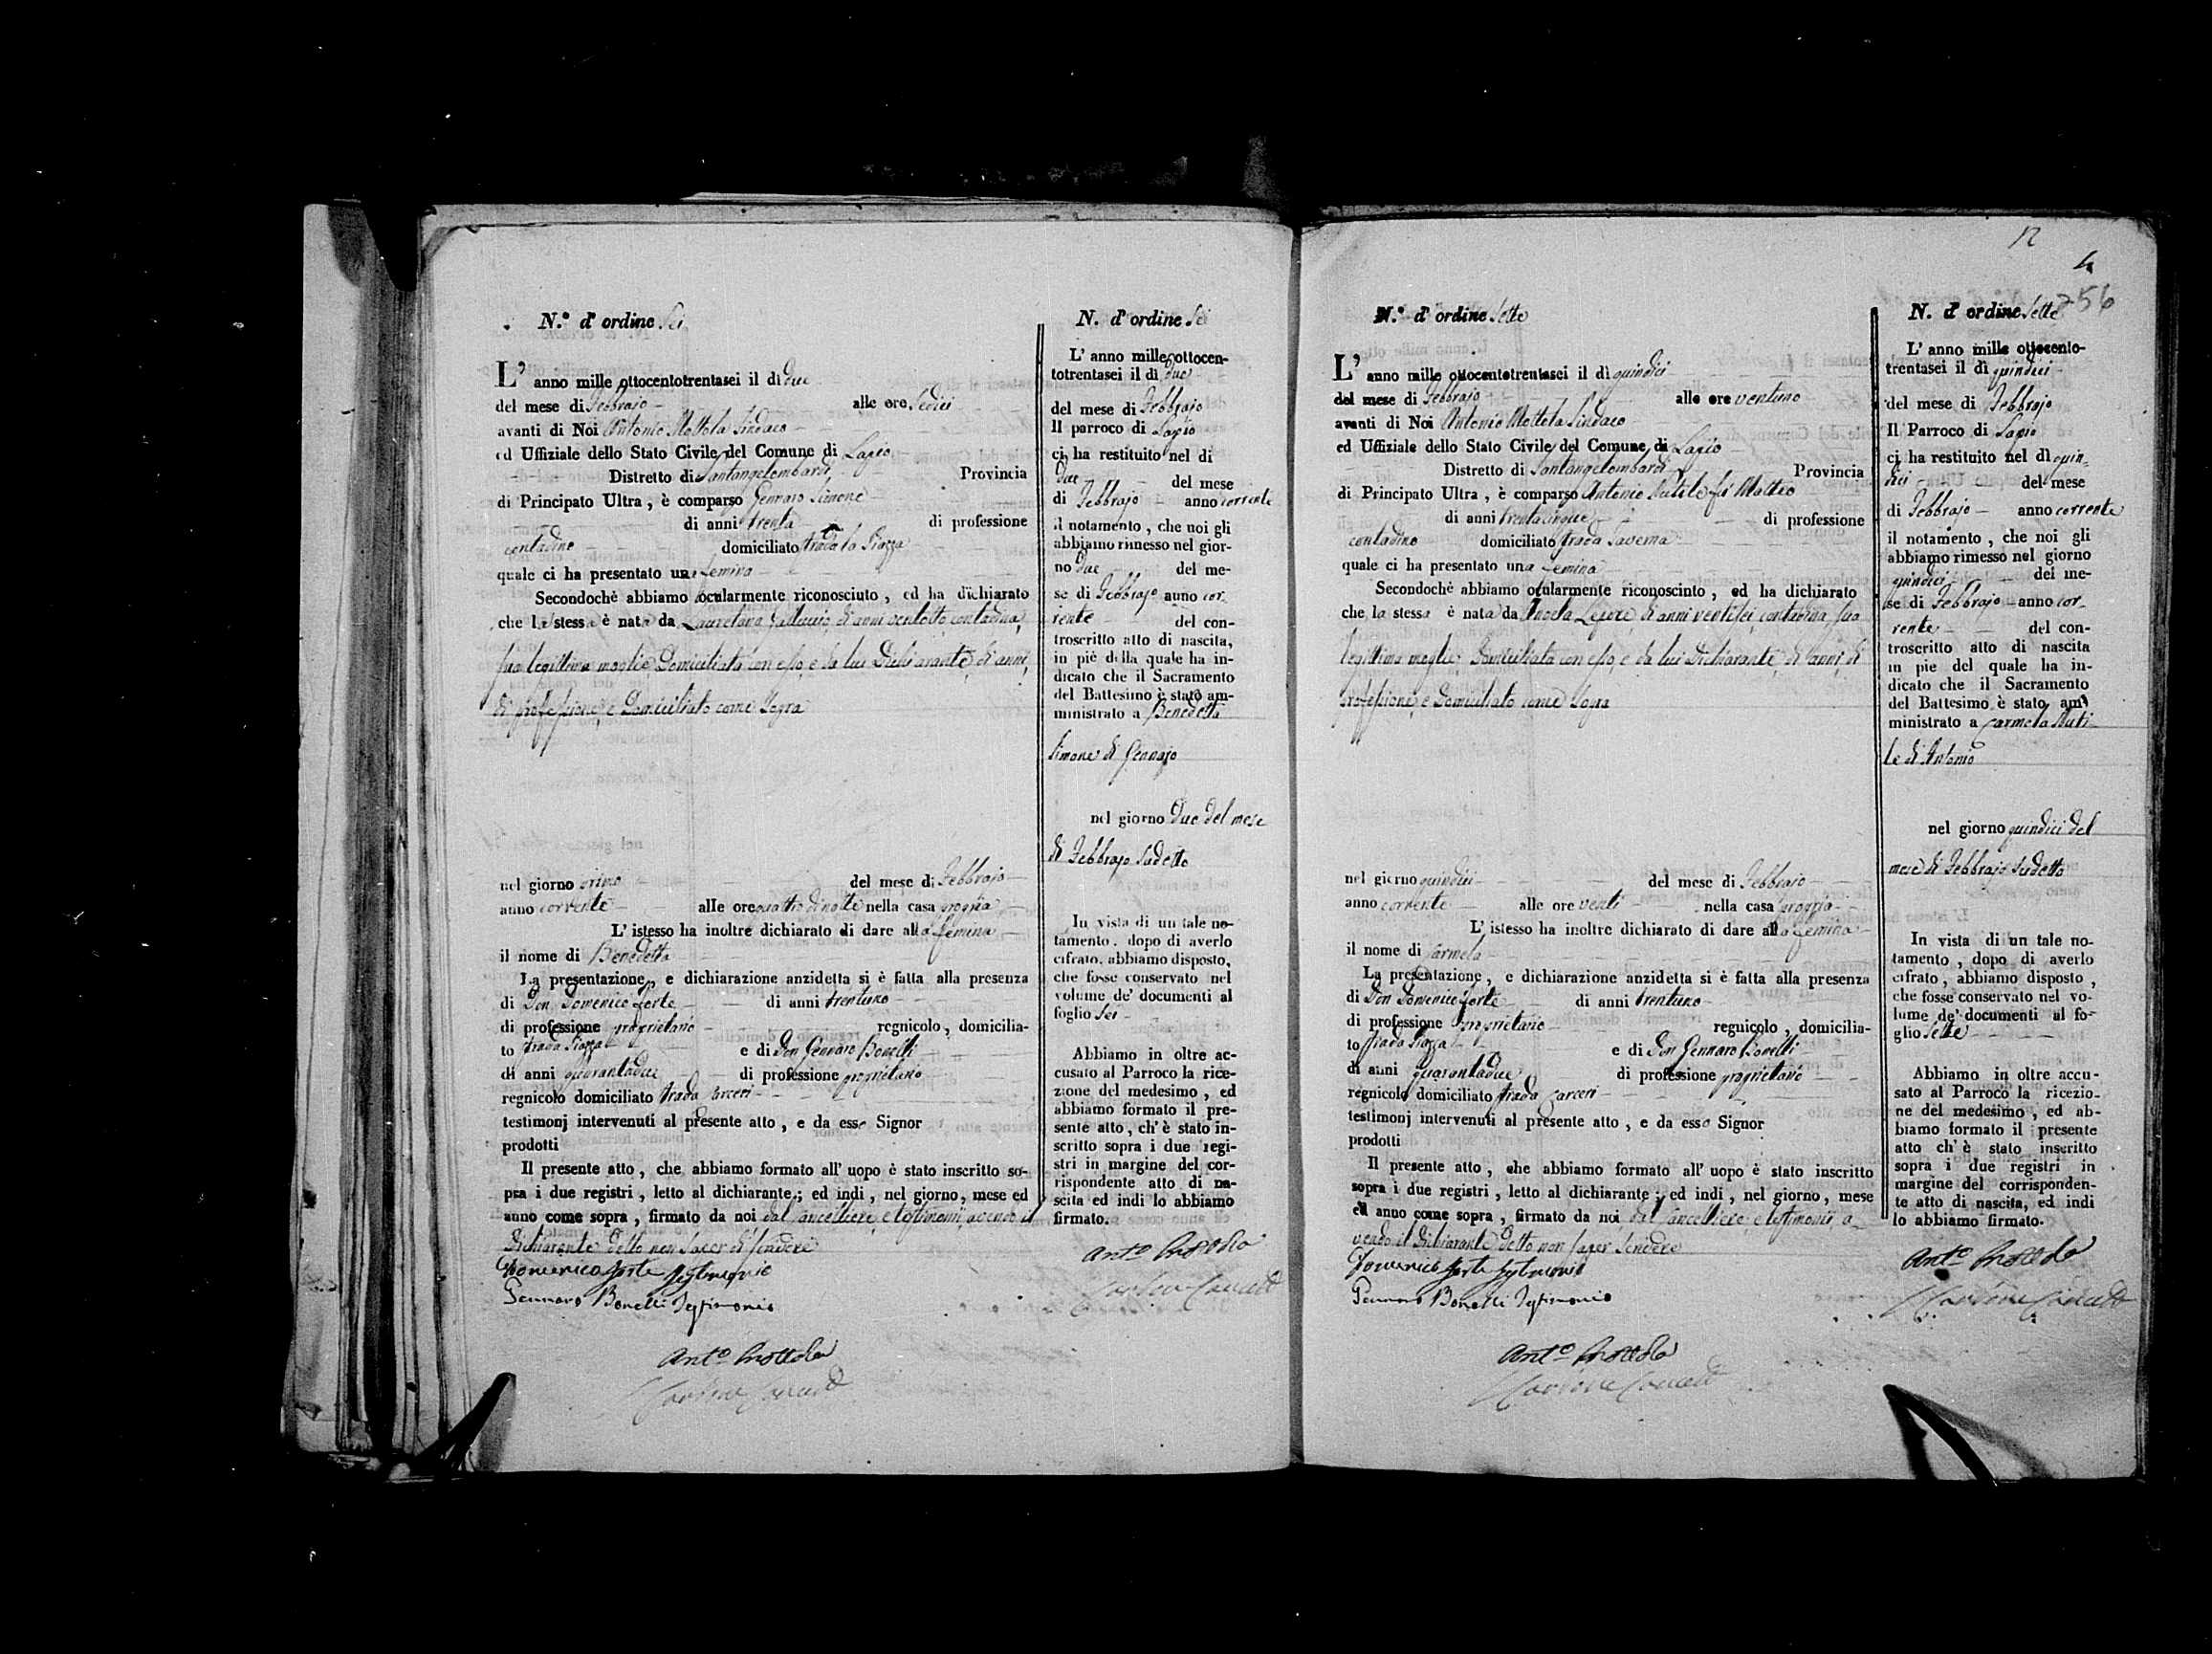 N.º d'ordine Sei
L' anno mille ottocentotrentasei il dì due
del mese di Febbrajo alle ore sedici
avanti di Noi Antonio Mottola Sindaco
ed Uffiziale dello Stato Civile del Comune di Lapio
Distretto di Santangelombardi Provincia
di Principato Ultra, è comparso Gennaro Simone
di anni trenta di professione
contadino domiciliato strada la Piazza
quale ci ha presentato una femina
Secondochè abbiamo ocularmente riconosciuto, ed ha dichiarato
che la stessa è nata da Lauretana di anni ventotto contadina,
sua legittima moglie Domiciliata con esso e da lui Dichiarante di anni,
di professione, e Domiciliato come sopra
nel giorno primo del mese di Febbrajo
anno corrente alle ore quattro di notte nella casa propria
L' istesso ha inoltre dichiarato di dare alla femina
il nome di Benedetta
La presentazione, e dichiarazione anzidetta si è fatta alla presenza
di Don Domenico Forte di anni trentuno
di professione proprietario regnicolo, domicilia-
to strada Piazza e di Don Gennaro Bonelli
di anni quarantadue di professione proprietario
regnicolo domiciliato strada Carceri
testimonj intervenuti al presente atto, e da esso Signor
prodotti
Il presente atto, che abbiamo formato all' uopo è stato inscritto so-
pra i due registri, letto al dichiarante; ed indi, nel giorno, mese ed
anno come sopra, firmato da noi dal Cancelliere, e testimonii, avendo il
Dichiarante detto non saper scrivere
Domenico Forte Testimonio
Gennaro Bonelli Testimonio
Ant.º Mottola
N. d'ordine Sei
L' anno mille ottocen-
totrentasei il dì due
del mese di Febbrajo
Il parroco di Lapio
ci ha restituito nel di
due del mese
di Febbrajo anno corrente
il notamento, che noi gli
abbiamo rimesso nel gior-
no due del me-
se di Febbrajo anno cor-
rente del con-
troscritto atto di nascita,
in piè della quale ha in-
dicato che il Sacramento
del Battesimo è stato am-
ministrato a Benedetta
Simone di Gennaro
nel giorno Due del mese
di Febbrajo sudetto
In vista di un tale no-
tamento, dopo di averlo
cifrato, abbiamo disposto,
che fosse conservato nel
volume de' documenti al
foglio Sei
Abbiamo in oltre ac-
cusato al Parroco la rice-
zione del medesimo, ed
abbiamo formato il pre-
sente atto, ch' è stato in-
scritto sopra i due regi-
stri in margine del cor-
rispondente atto di na-
scita ed indi lo abbiamo
firmato.
Ant.º Mottola
12
4
256
N.º d'ordine Sette
L' anno mille ottocentotrentasei il dì quindici
del mese di Febbrajo alle ore ventuno
avanti di Noi Antonio Mottola Sindaco
ed Uffiziale dello Stato Civile del Comune di Lapio
Distretto di Santangelombardi Provincia
di Principato Ultra, è comparso Antonio Nutile fù Matteo
di anni trentacinque di professione
contadino domiciliato strada Taverna
quale ci ha presentato una femina
Secondochè abbiamo ocularmente riconosciuto, ed ha dichiarato
che la stessa è nata da Lepore di anni ventisei contadina, sua
legittima moglie Domiciliata con esso e da lui Dichiarante di anni, di
professione, e Domiciliato come sopra
nel giorno quindici del mese di Febbrajo
anno corrente alle ore venti nella casa propria
L' istesso ha inoltre dichiarato di dare alla femina
il nome di Carmela
La presentazione, e dichiarazione anzidetta si è fatta alla presenza
di Don Domenico Forte di anni trentuno
di professione proprietario regnicolo, domicilia-
to strada Piazza e di Don Gennaro Bonelli
di anni quarantadue di professione proprietario
regnicolo domiciliato strada Carceri
testimonj intervenuti al presente atto, e da esso Signor
prodotti
Il presente atto, che abbiamo formato all' uopo è stato inscritto
sopra i due registri, letto al dichiarante; ed indi, nel giorno, mese
ed anno come sopra, firmato da noi dal Cancelliere, e testimonii, a-
vendo il Dichiarante detto non saper scrivere
Domenico Forte Testimonio
Gennaro Bonelli Testimonio
Ant.º Mottola
N. d'ordine Sette
L' anno mille ottocento-
trentasei il dì quindici
del mese di Febbrajo
Il Parroco di Lapio
ci ha restituito nel dì quin-
dici del mese
di Febbrajo anno corrente
il notamento, che noi gli
abbiamo rimesso nel giorno
quindici del me-
se di Febbrajo anno cor-
rente del con-
troscritto atto di nascita
in pie del quale ha in-
dicato che il Sacramento
del Battesimo è stato am-
ministrato a Carmela Nuti-
le di Antonio
nel giorno quindici del
mese di Febbrajo sudetto
In vista di un tale no-
tamento, dopo di averlo
cifrato, abbiamo disposto,
che fosse conservato nel vo-
lume de' documenti al fo-
glio Sette
Abbiamo in oltre accu-
sato al Parroco la ricezio-
ne del medesimo, ed ab-
biamo formato il presente
atto ch' è stato inscritto
sopra i due registri in
margine del corrisponden-
te atto di nascita, ed indi
lo abbiamo firmato.
Ant.º Mottola